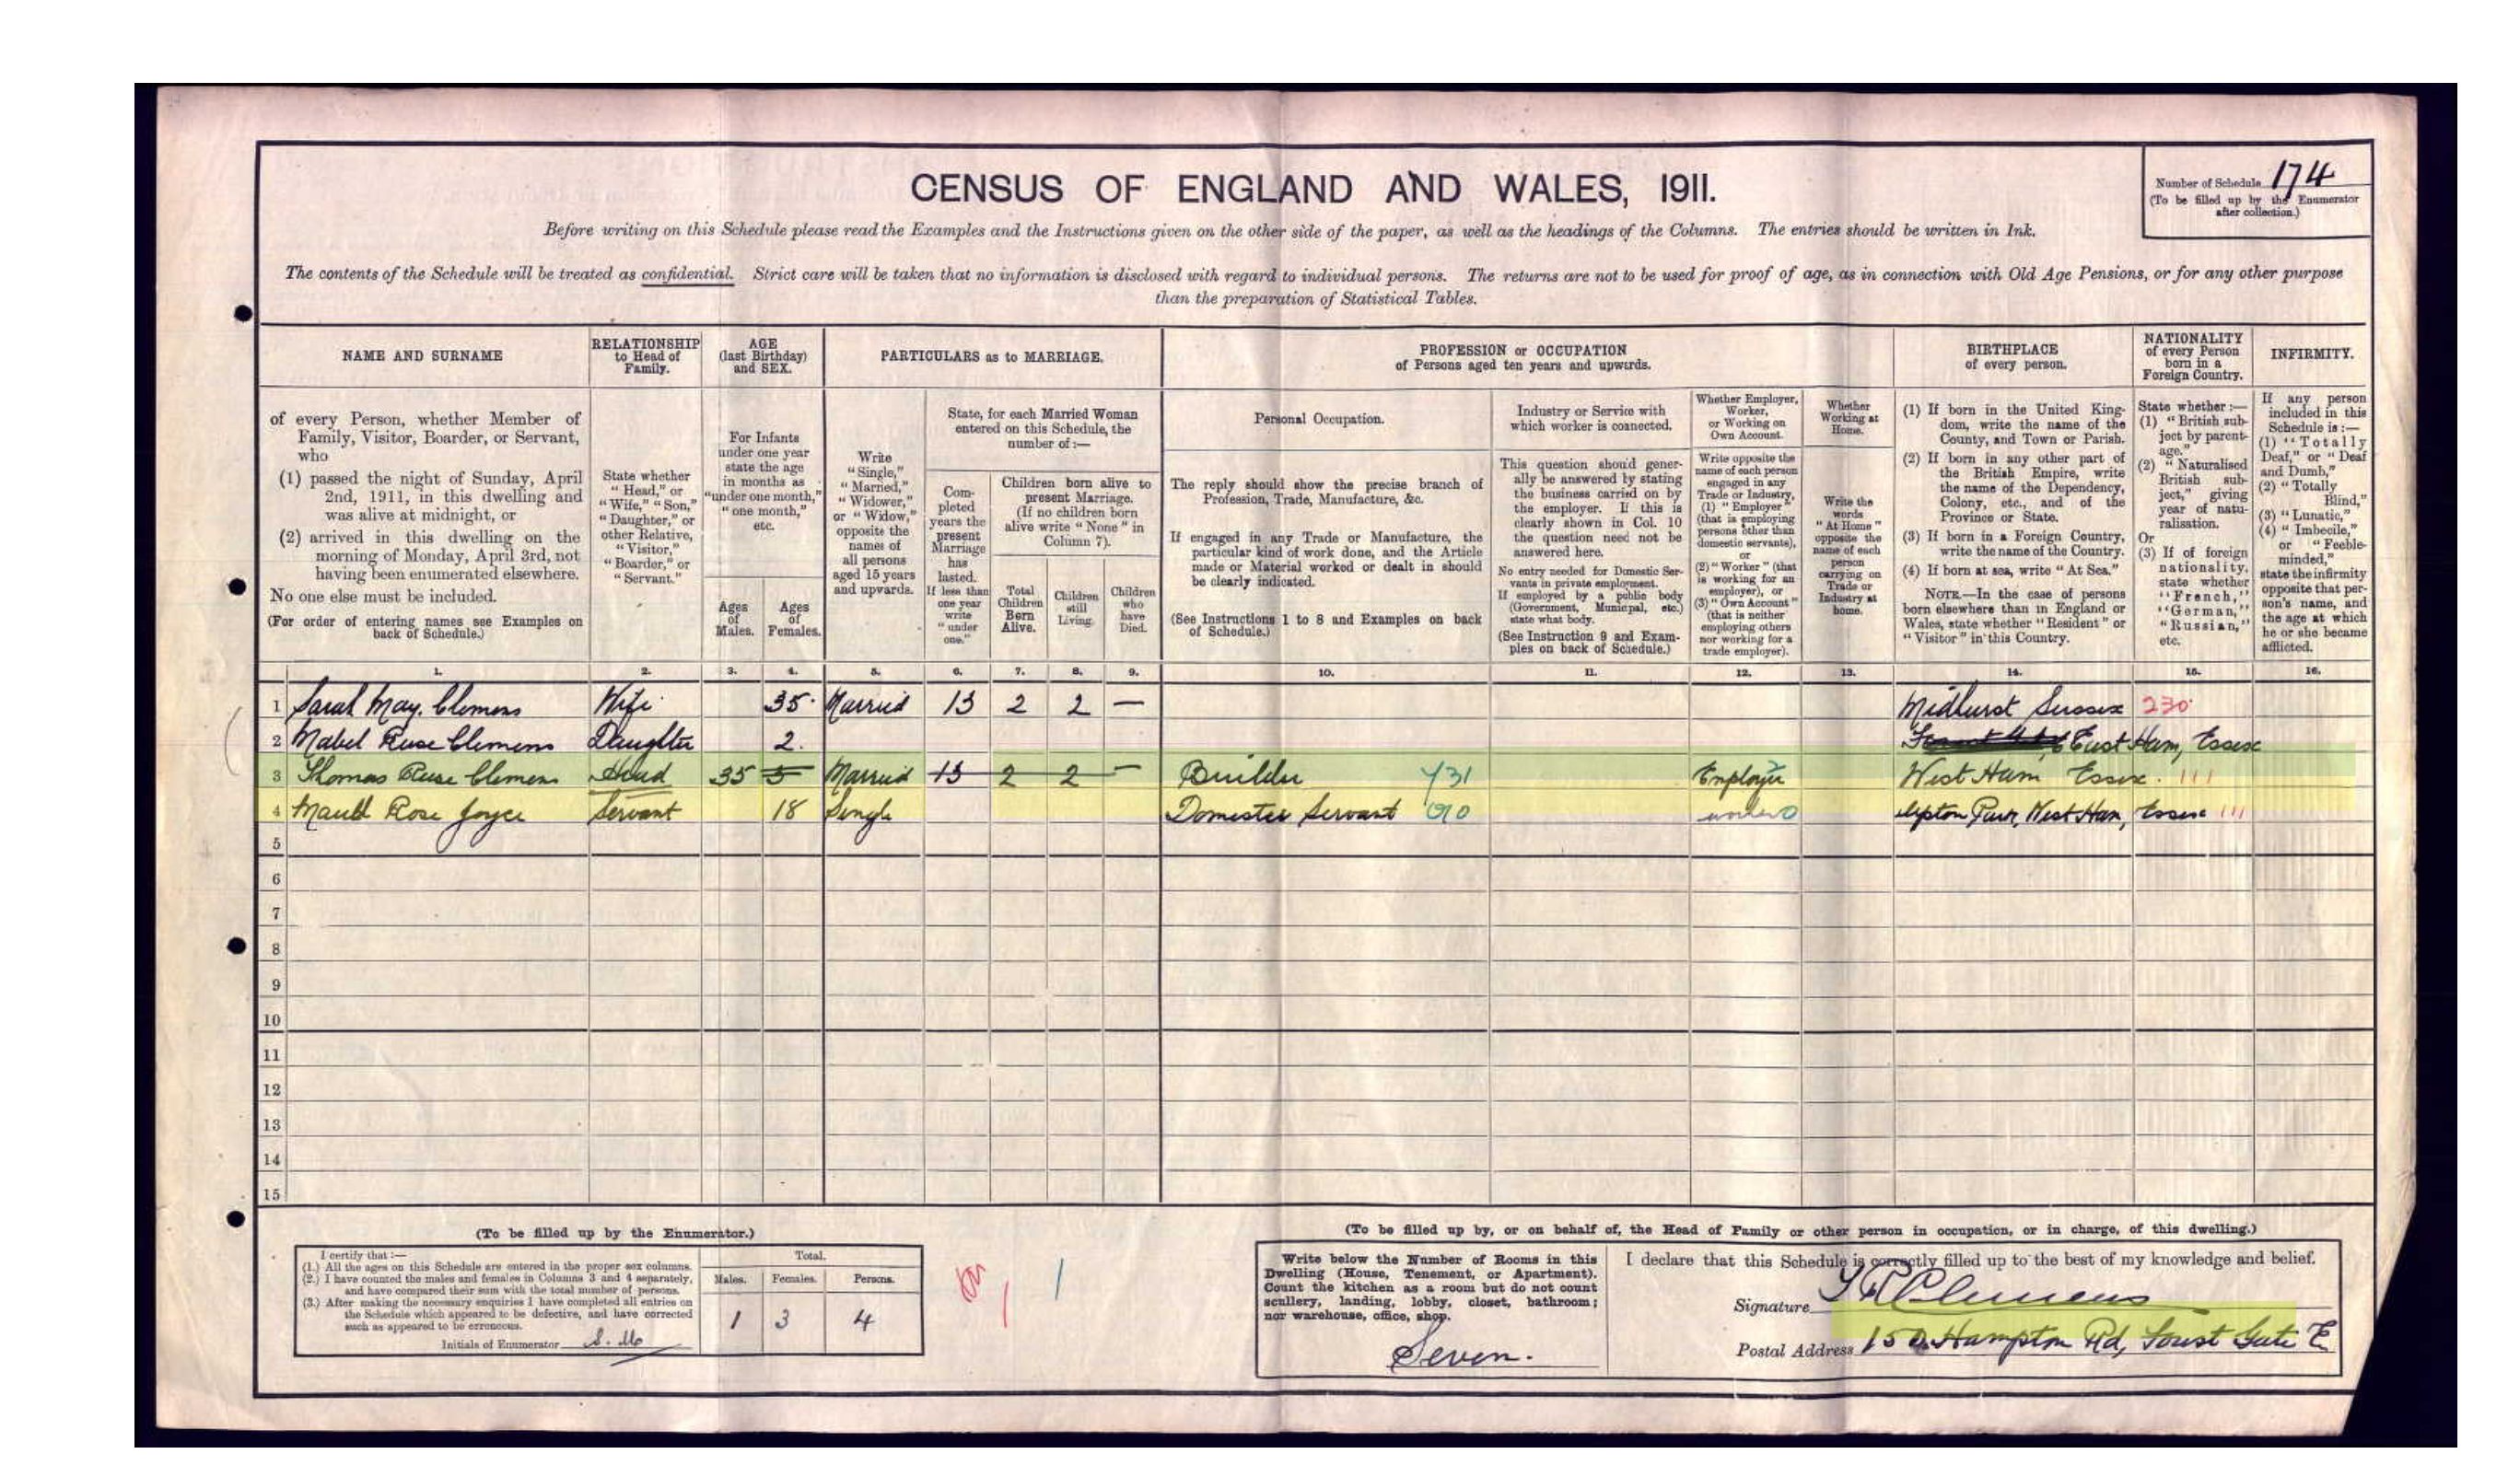 CENSUS OF ENGLAND AND WALES, 1911.
Number of Schedule 174
(To be filled up by the Enumerator
after collection.)
Before writing on this Schedule please read the Examples and the Instructions given on the other side of the paper, as well as the headings of the Columns. The entries should be written in Ink.
The contents of the Schedule will be treated as confidential. Strict care will be taken that no information is disclosed with regard to individual persons. The returns are not to be used for proof of age, as in connection with Old Age Pensions, or for any other purpose
than the preparation of Statistical Tables.
NAME AND SURNAME
of every Person, whether Member of
Family, Visitor, Boarder, or Servant,
who
(1) passed the night of Sunday, April
2nd, 1911, in this dwelling and
was alive at midnight, or
(2) arrived in this dwelling on the
morning of Monday, April 3rd, not
having been enumerated elsewhere.
No one else must be included.
(For order of entering names see Examples on
back of Schedule.)
RELATIONSHIP
to Head of
Family.
State whether
"Head," or
"Wife," "Son,"
"Daughter," or
other Relative,
"Visitor,"
"Boarder," or
"Servant."
AGE
(last Birthday)
and SEX.
For Infants
under one year
state the age
in months as
"under one month,"
"one month,"
etc.
Ages
of
Males.
Ages
of
Females.
PARTICULARS as to MARRIAGE.
Write
"Single,"
"Married,"
"Widower,"
or "Widow,"
opposite the
names of
all persons
aged 15 years
and upwards.
State, for each Married Woman
entered on this Schedule, the
number of:—
Com-
pleted
years the
present
Marriage
has
lasted.
If less than
one year
write
"under
one."
Children born alive to
present Marriage.
(If no children born
alive write "None" in
Column 7).
Total
Children
Born
Alive.
Children
still
Living.
Children
who
have
Died.
PROFESSION or OCCUPATION
of Persons aged ten years and upwards.
Personal Occupation.
The reply should show the precise branch of
Profession, Trade, Manufacture, &c.
If engaged in any Trade or Manufacture, the
particular kind of work done, and the Article
made or Material worked or dealt in should
be clearly indicated.
(See Instructions 1 to 8 and Examples on back
of Schedule.)
Industry or Service with
which worker is connected.
This question should gener-
ally be answered by stating
the business carried on by
the employer. If this is
clearly shown in Col. 10
the question need not be
answered here.
No entry needed for Domestic Ser-
vants in private employment.
If employed by a public body
(Government, Municipal, etc.)
state what body.
(See Instruction 9 and Exam-
ples on back of Schedule.)
Whether Employer,
Worker,
or Working on
Own Account.
Write opposite the
name of each person
engaged in any
Trade or Industry,
(1) "Employer"
(that is employing
persons other than
domestic servants),
or
(2) "Worker" (that
is working for an
employer), or
(3) "Own Account"
(that is neither
employing others
nor working for a
trade employer).
Whether
Working at
Home.
Write the
words
"At Home"
opposite the
name of each
person
carrying on
Trade or
Industry at
home.
BIRTHPLACE
of every person.
(1) If born in the United King-
dom, write the name of the
County, and Town or Parish.
(2) If born in any other part of
the British Empire, write
the name of the Dependency,
Colony, etc., and of the
Province or State.
(3) If born in a Foreign Country,
write the name of the Country.
(4) If born at sea, write "At Sea."
NOTE.—In the case of persons
born elsewhere than in England or
Wales, state whether "Resident" or
"Visitor" in this Country.
NATIONALITY
of every Person
born in a
Foreign Country.
State whether:—
(1) "British sub-
ject by parent-
age."
(2) "Naturalised
British sub-
ject," giving
year of natu-
ralisation.
Or
(3) If of foreign
nationality,
state whether
"French,"
"German,"
"Russian,"
etc.
INFIRMITY.
If any person
included in this
Schedule is:—
(1) "Totally
Deaf," or "Deaf
and Dumb,"
(2) "Totally
Blind,"
(3) "Lunatic,"
(4) "Imbecile,"
or "Feeble-
minded,"
state the infirmity
opposite that per-
son's name, and
the age at which
he or she became
afflicted.
1. 2. 3. 4. 5. 6. 7. 8. 9. 10. 11. 12. 13. 14. 15. 16.
1 Sarah May. Clemens Wife 35 Married 13 2 2 — Midhurst Sussex 230
2 Mabel Ruse Clemens Daughter 2. East Ham, Essex
3 Thomas Ruse Clemens Head 35 5 Married 13 2 2 — Builder 731 Employer West Ham Essex. 111
4 Maud Rose Joyce Servant 18 Single Domestic Servant 010 worker 0 Upton Park, West Ham, Essex 111
5
6
7
8
9
10
11
12
13
14
15
(To be filled up by the Enumerator.)
I certify that:—
(1.) All the ages on this Schedule are entered in the proper sex columns.
(2.) I have counted the males and females in Columns 3 and 4 separately,
and have compared their sum with the total number of persons.
(3.) After making the necessary enquiries I have completed all entries on
the Schedule which appeared to be defective, and have corrected
such as appeared to be erroneous.
Initials of Enumerator
Total.
Males. Females. Persons.
1 3 4
(To be filled up by, or on behalf of, the Head of Family or other person in occupation, or in charge, of this dwelling.)
Write below the Number of Rooms in this
Dwelling (House, Tenement, or Apartment).
Count the kitchen as a room but do not count
scullery, landing, lobby, closet, bathroom;
nor warehouse, office, shop.
Seven.
I declare that this Schedule is correctly filled up to the best of my knowledge and belief.
Signature T R Clemens
Postal Address Hampton Rd, Forest Gate E.